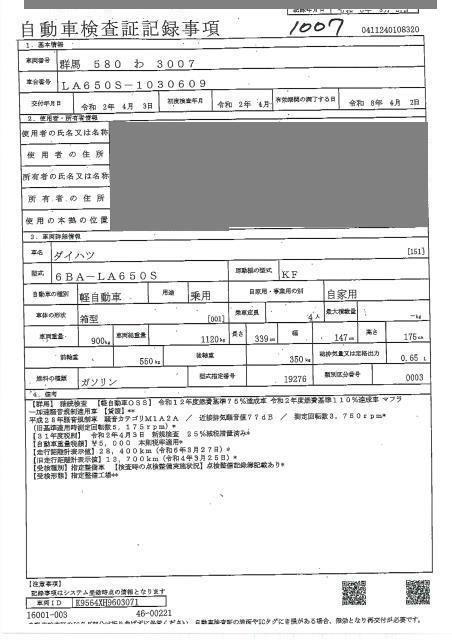 自動車検査証記録事項
1007
0411240108320
1. 基本情報
車両番号 群馬 580 わ 3007
車台番号 LA650S-1030609
交付年月日 令和 2年 4月 3日 初度検査年月 令和 2年 4月 有効期間の満了する日 令和 8年 4月 2日
2. 使用者・所有者情報
使用者の氏名又は名称
使用者の住所
所有者の氏名又は名称
所有者の住所
使用の本拠の位置
3. 車両詳細情報
車名 ダイハツ [151]
型式 6BA-LA650S 原動機の型式 KF
自動車の種別 軽自動車 用途 乗用 自家用・事業用の別 自家用
車体の形状 箱型 [001] 乗車定員 4人 最大積載量 -kg
車両重量 900kg 車両総重量 1120kg 長さ 339cm 幅 147cm 高さ 175cm
前軸重 550kg 後軸重 350kg 総排気量又は定格出力 0.65L
燃料の種類 ガソリン 型式指定番号 19276 類別区分番号 0003
4. 備考
【群馬】 継続検査 【軽自動車OSS】 令和12年度燃費基準75%達成車 令和2年度燃費基準110%達成車 マフラ
ー加速騒音規制適用車 【貸渡】**
平成28年騒音規制車 騒音カテゴリM1A2A / 近接排気騒音値77dB / 測定回転数3,750rpm*
(旧基準適用時測定回転数5,175rpm)*
【31年度税制】 令和2年4月3日 新規検査 25%軽減措置済み*
【自動車重量税額】¥5,000 本則税率適用*
【走行距離計表示値】28,400km(令和6年3月27日)*
【旧走行距離計表示値】13,700km(令和4年3月25日)*
【受検種別】指定整備車 【検査時の点検整備実施状況】点検整備記録簿記載あり*
【受検形態】指定整備工場**
【注意事項】
記録事項はシステム登録時点の情報となります
車両ID K9564XH9603071
16001-003 46-00221